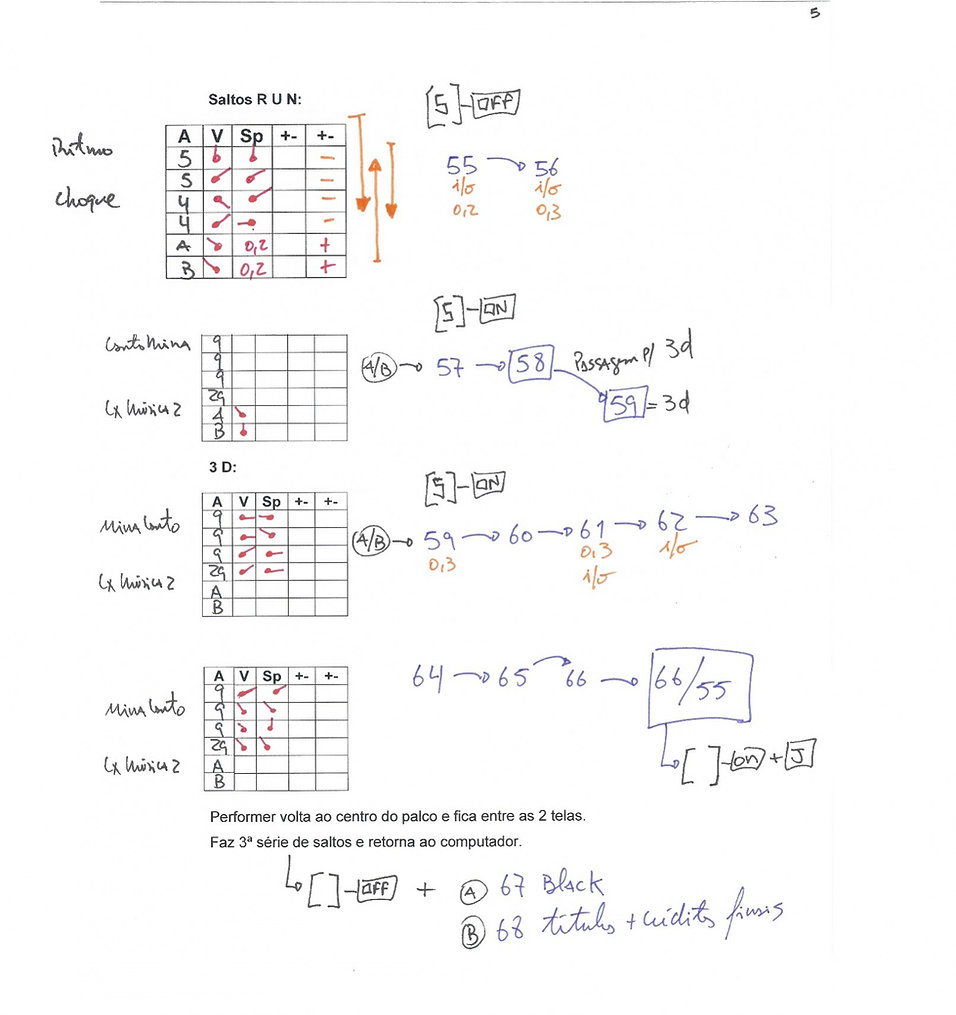 5
Saltos R U N:
[5]-OFF
A V Sp +- +-
Ritmo
5 -
55 56
5 -
i/o i/o
0,2 0,3
Choque
4 -
4 -
A 0,2 +
B 0,2 +
[5]-ON
Canto Mina
9
9
9
29
A
B
A/B 57 58 Passagem p/ 3d
59 = 3d
Cx Música 2
3 D:
[5]-ON
A V Sp +- +-
Mina Canto
9
9
9
29
A
B
A/B 59 60 61 62 63
0,3 0,3 i/o
i/o
Cx Música 2
A V Sp +- +-
64 65 66 66/55
9
Mina Canto
9
9
29
[ ]-on + J
Cx Música 2
A
B
Performer volta ao centro do palco e fica entre as 2 telas.
Faz 3ª série de saltos e retorna ao computador.
[ ]-OFF + A 67 Black
B 68 títulos + créditos finais